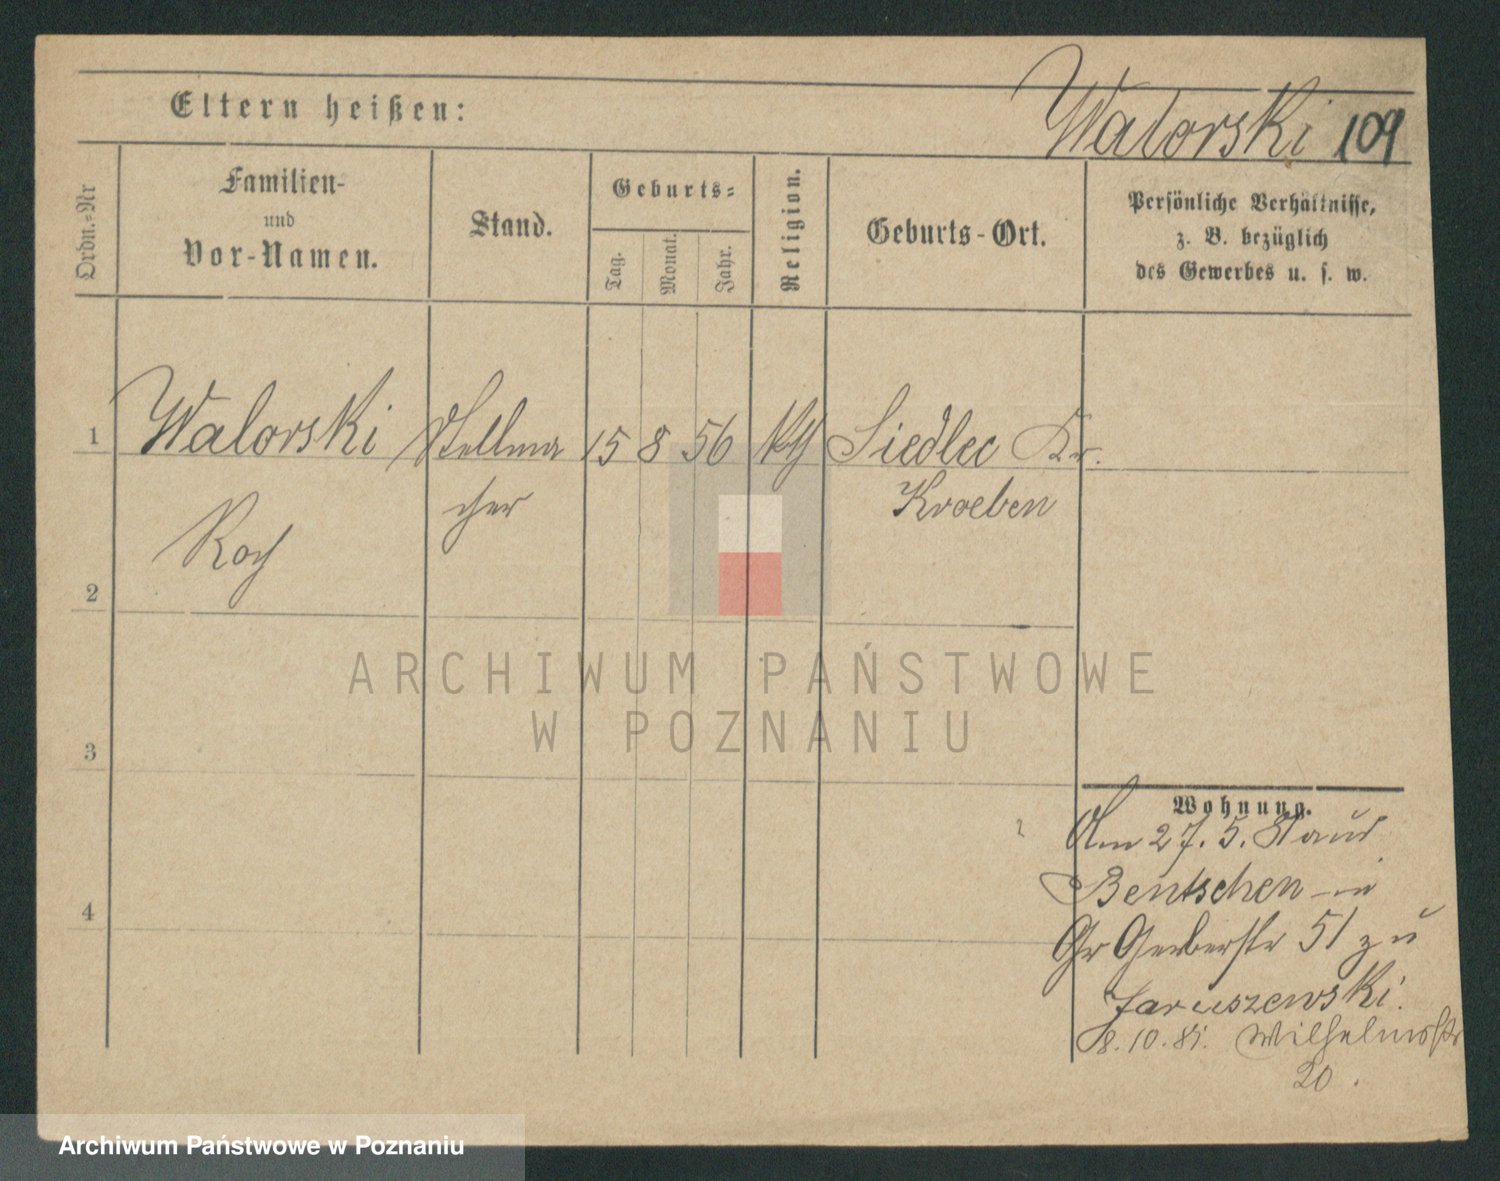 Eltern heißen:
Walorski 109
Ordn.=Nr
Familien-
und
Vor-Namen.
Stand.
Geburts=
Tag.
Monat.
Jahr.
Religion.
Geburts-Ort.
Persönliche Verhältnisse,
z. B. bezüglich
des Gewerbes u. s. w.
1 Walorski Stellma 15 8 56 kth Siedlec Kr.
cher Kroeben
Roch
2
3
4
ARCHIWUM PAŃSTWOWE
W POZNANIU
Wohnung.
Am 27. 5. 81 aus
Bentschen in
Gr Gerberstr 51 zu
Jaruszewski.
8. 10. 81. Wilhelmstr
20.
Archiwum Państwowe w Poznaniu